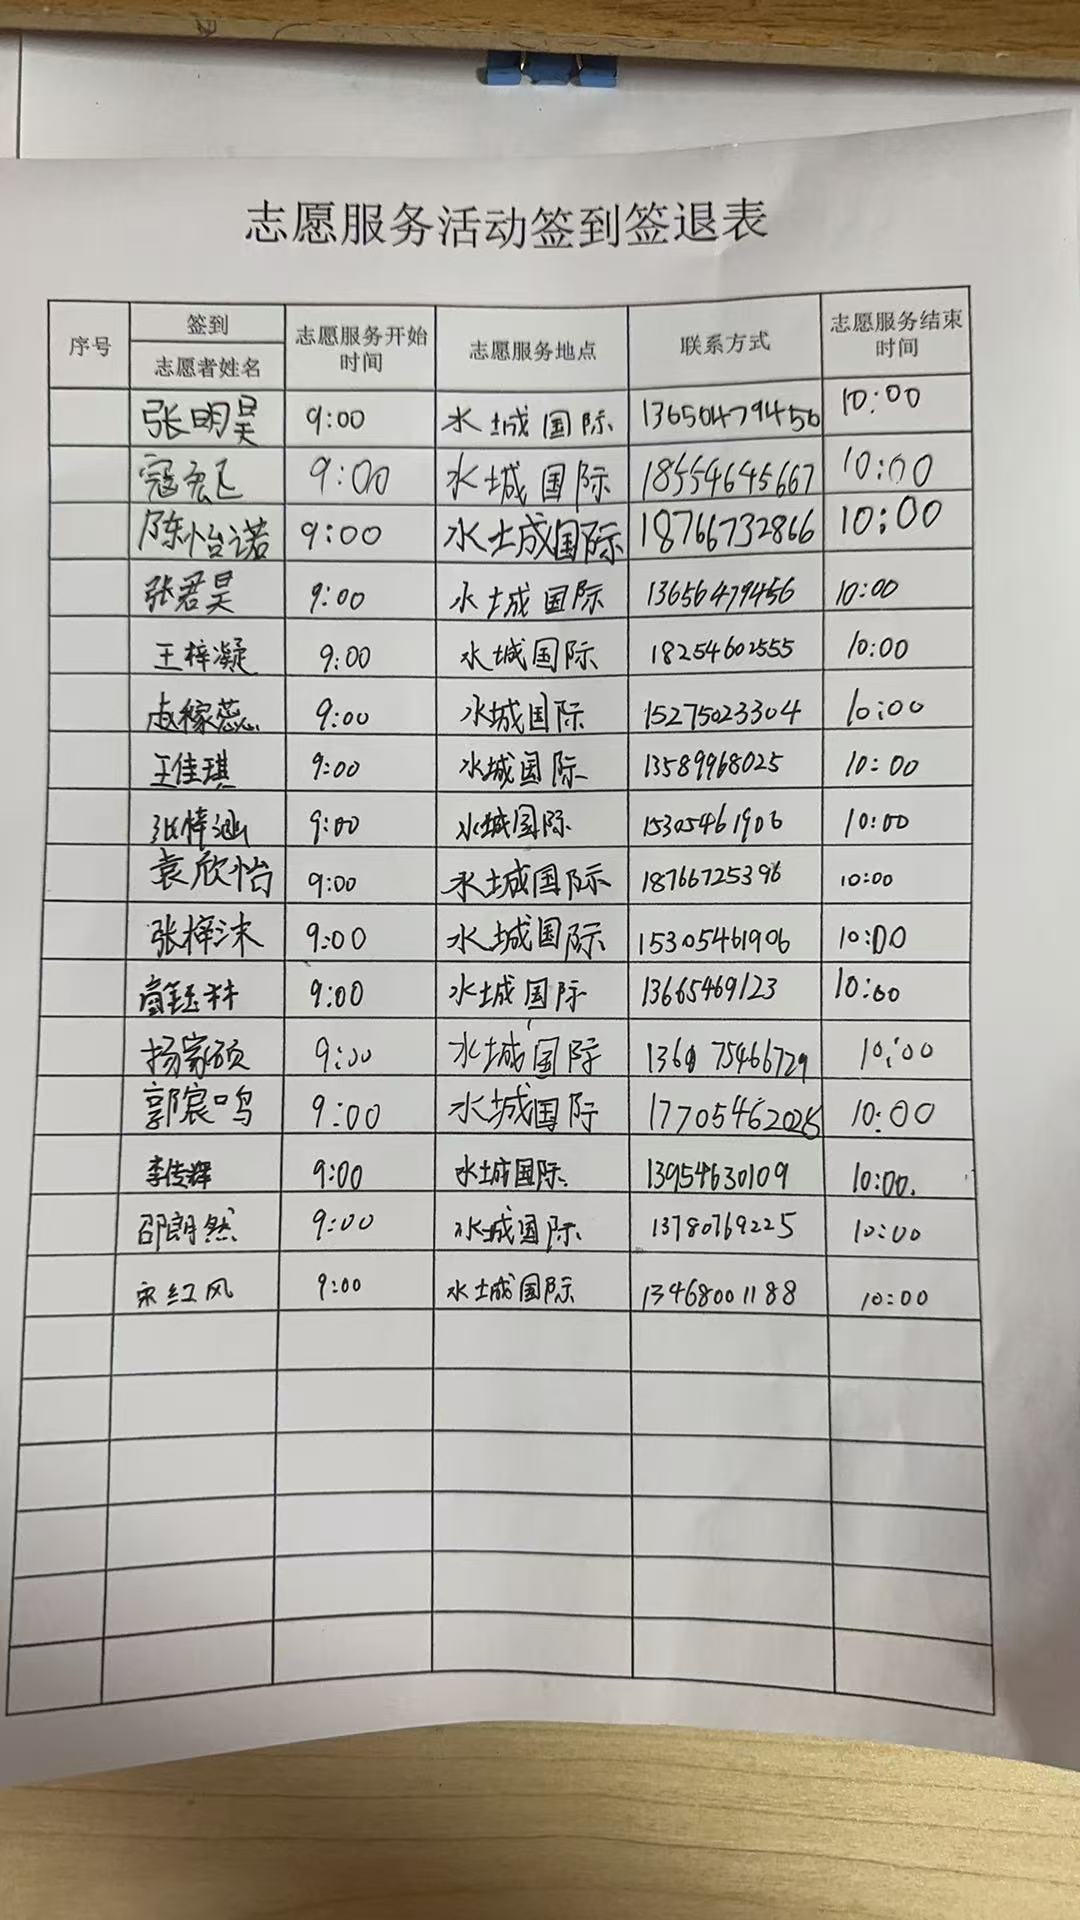 志愿服务活动签到签退表
序号 签到 志愿者姓名 志愿服务开始时间 志愿服务地点 联系方式 志愿服务结束时间
张明昊 9:00 水城国际 13650479456 10:00
寇宏飞 9:00 水城国际 18554645667 10:00
陈怡诺 9:00 水城国际 18766732866 10:00
张君昊 9:00 水城国际 13656479456 10:00
王梓凝 9:00 水城国际 18254602555 10:00
赵稼蕊 9:00 水城国际 15275023304 10:00
王佳琪 9:00 水城国际 13589968025 10:00
张梓涵 9:00 水城国际 15305461906 10:00
袁欣怡 9:00 水城国际 18766725396 10:00
张梓沫 9:00 水城国际 15305461906 10:00
9:00 水城国际 13665469123 10:00
杨家硕 9:00 水城国际 10:00
郭宸鸣 9:00 水城国际 17705462025 10:00
李传辉 9:00 水城国际 13954630109 10:00.
邵朗然 9:00 水城国际 13780769225 10:00
宋红风 9:00 水城国际 13468001188 10:00